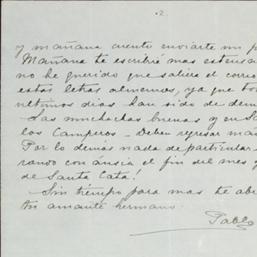 .2.
y mañana cuento enviarte mi p
Mañana te escribiré mas estensa
no he querido que saliera el correo
estas letras almenos, ya que to
ultimos dias han sido de dema
Las muchachas buenas y en S
los Camperos - Deben regresar ma
Por lo demás nada de particular -
rando con ánsia el fin del mes y
de Santa Cata!
Sin tiempo para mas te ab
tu amante hermano
Pablo